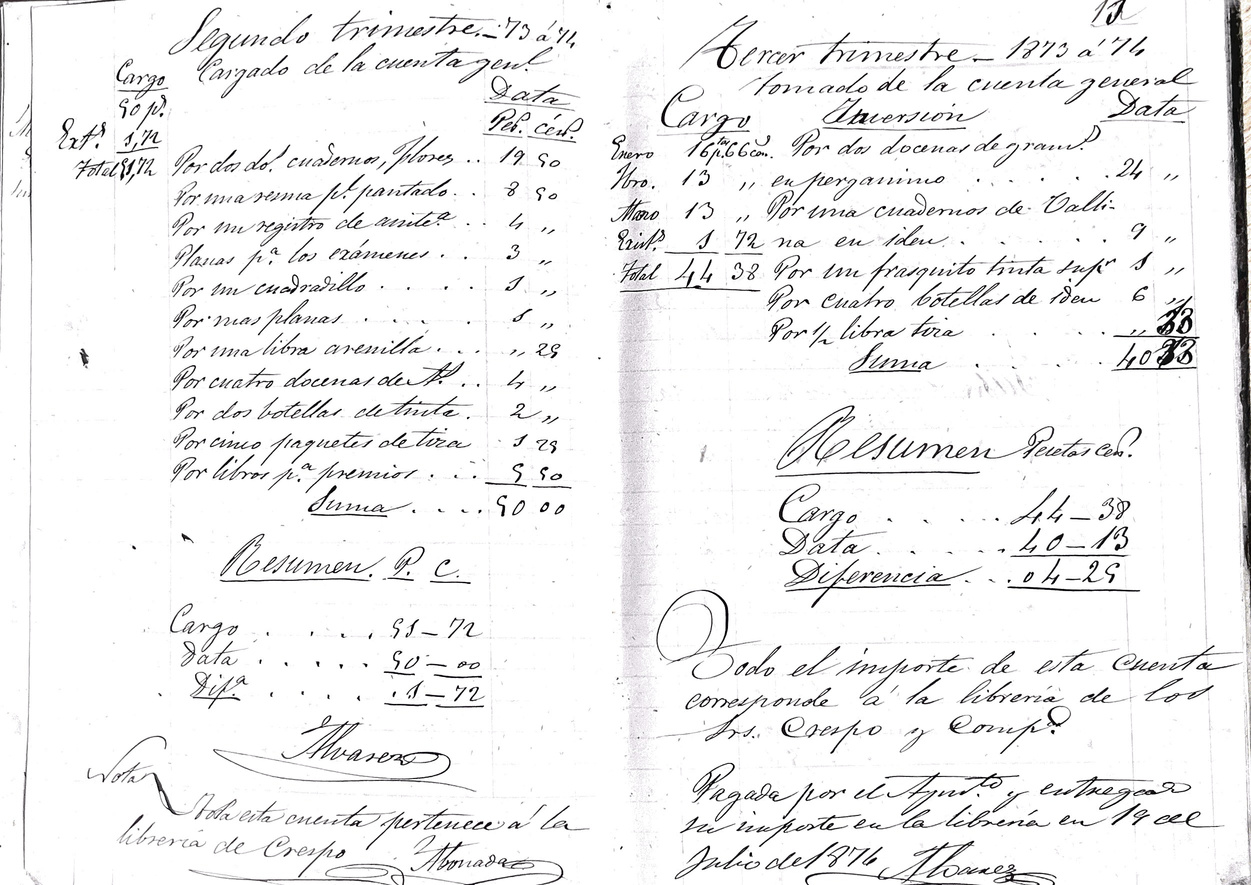 Segundo trimestre.–73 á 74
Cargado de la cuenta genl.
Cargo
50 ps.
Exts. 1,72
Total 51,72
Data
Pes. cén.
Por dos ds. cuadernos, flores .. 19 50
Por una resma pl. pautado .. 8 50
Por un registro de .. 4 „
Planas pa. los exámenes .. 3 „
Por un cuadradillo . . . . 1 „
Por mas planas . . . . 1 „
Por una libra arenilla . . . „ 25
Por cuatro docenas de .. 4 „
Por dos botellas de tinta . 2 „
Por cinco paquetes de tiza 1 25
Por libros pa. premios . . . 5 50
Suma . . . . 50 00
Resumen. P. C.
Cargo . . . . 51–72
Data . . . . . 50–00
Difa. . . . . . 1–72
Alvarez
Nota
Toda esta cuenta pertenece á la
librería de Crespo. Abonada
13
Tercer trimestre – 1873 á 74
tomado de la cuenta general
Cargo Inversión Data
Enero 16 ptas. 66 cén. Por dos docenas de gramas.
Fbro. 13 „ en pergamino . . . . . 24 „
Marzo 13 „ Por una cuadernos de Valli-
Exist. 1 72 na en iden . . . . . . 9 „
Total 44 38 Por un frasquito tinta supr 1 „
Por cuatro botellas de iden 6 „
Por 1/2 libra tiza . . . . „ 13
Suma . . . . 40 13
Resumen Pesetas cen.
Cargo . . . . . 44–38
Data . . . . . 40–13
Diferencia . . . 04–25
Todo el importe de esta cuenta
corresponde á la librería de los
Srs. Crespo y Compa.
Pagada por el Ayunto. y entregado
su importe en la librería en 19 del
Julio de 1874 Alvarez